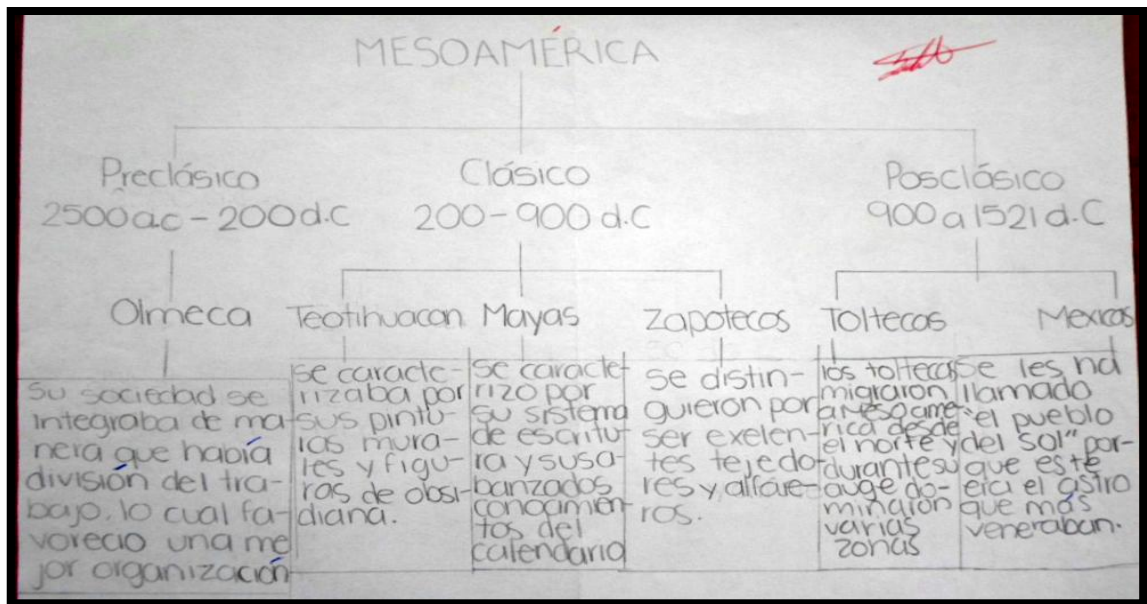 MESOAMÉRICA
Preclásico
2500 a.c - 200 d.C
Clásico
200 - 900 d.C
Posclásico
900 a 1521 d.C
Olmeca
Su sociedad se
integraba de ma-
nera que había
división del tra-
bajo, lo cual fa-
vorecio una me
jor organización
Teotihuacan
se caracte-
rizaba por
sus pintu-
ras mura-
les y figu-
ras de obsi-
diana.
Mayas
se caracte-
rizo por
su sistema
de escritu-
ra y sus a-
banzados
conocimien-
tos del
calendario
Zapotecos
se distin-
guieron por
ser exelen-
tes tejedo-
res y alfare-
ros.
Toltecas
los toltecas
migraron
a Mesoame-
rica desde
el norte y
durante su
auge do-
minaron
varias
zonas
Mexicas
Se les ha
llamado
"el pueblo
del Sol" por-
que este
era el astro
que más
veneraban.